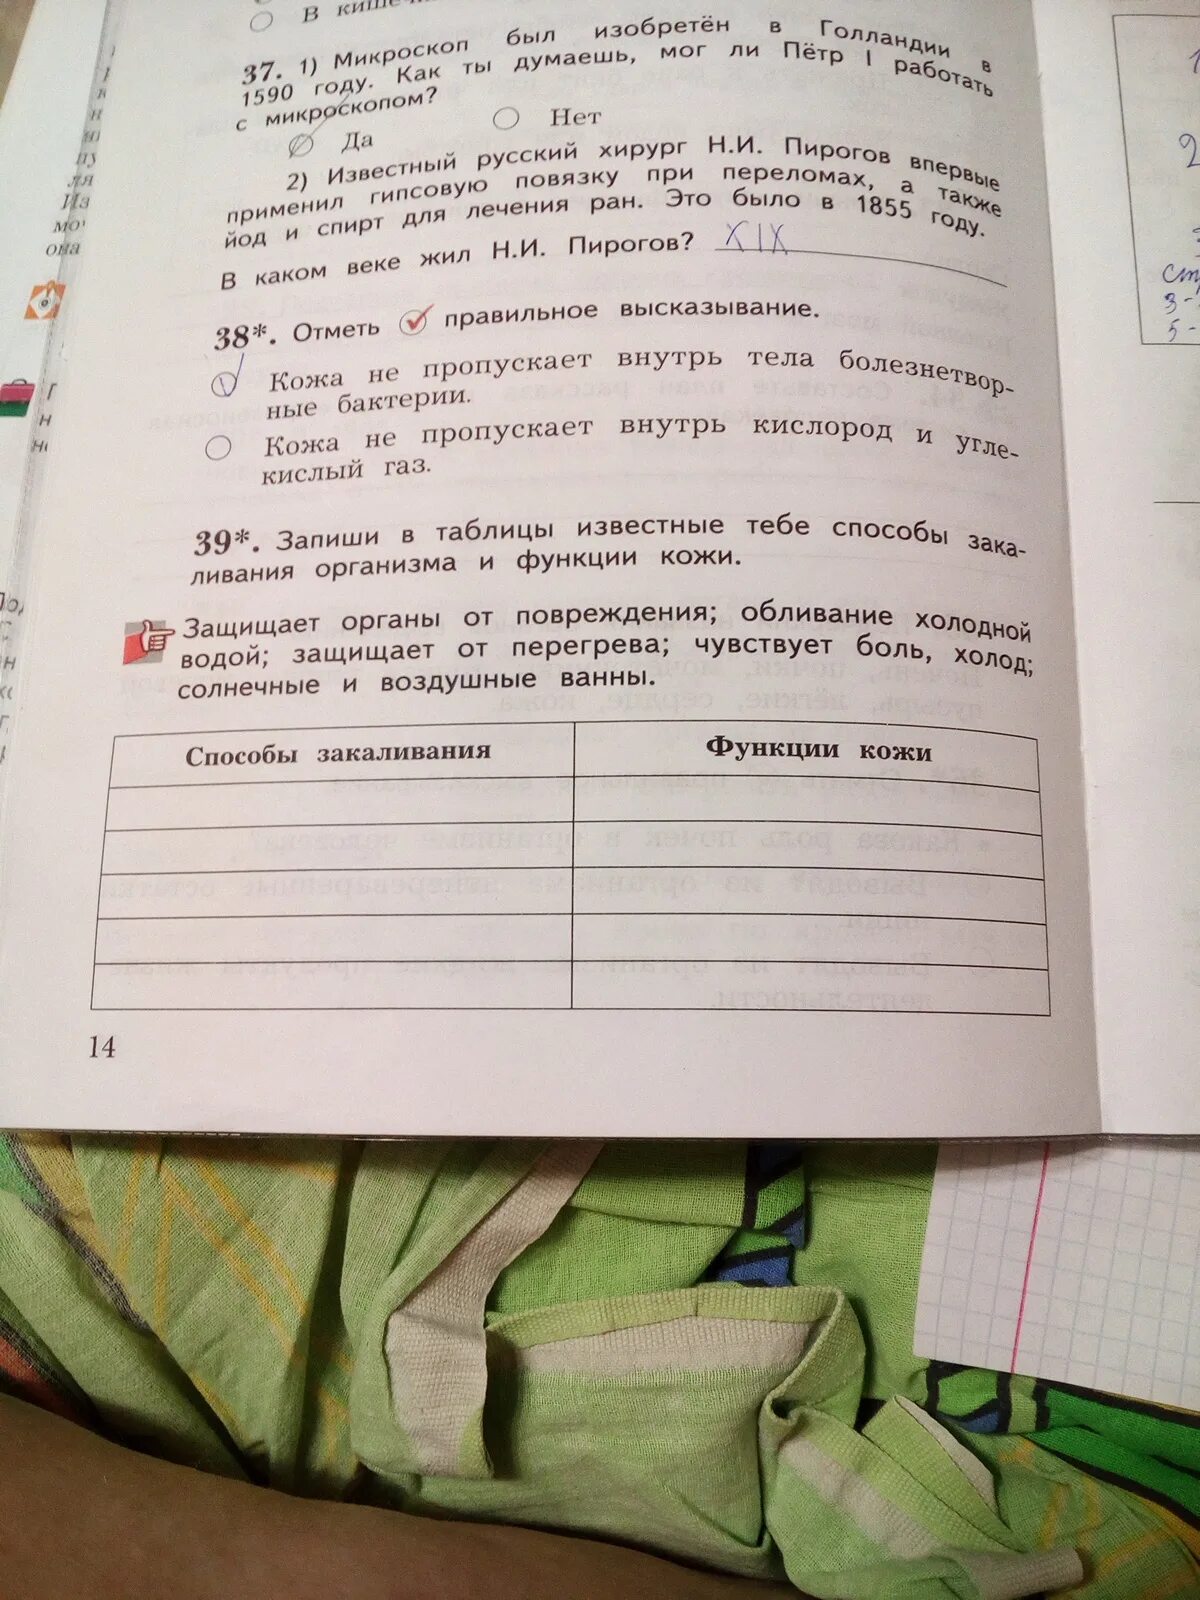 В
37. 1) Микроскоп был изобретён в Голландии в
1590 году. Как ты думаешь, мог ли Пётр I работать
с микроскопом?
Да Нет
2) Известный русский хирург Н.И. Пирогов впервые
применил гипсовую повязку при переломах, а также
йод и спирт для лечения ран. Это было в 1855 году.
В каком веке жил Н.И. Пирогов? XIX
38*. Отметь правильное высказывание.
Кожа не пропускает внутрь тела болезнетвор-
ные бактерии.
Кожа не пропускает внутрь кислород и угле-
кислый газ.
39*. Запиши в таблицы известные тебе способы зака-
ливания организма и функции кожи.
Защищает органы от повреждения; обливание холодной
водой; защищает от перегрева; чувствует боль, холод;
солнечные и воздушные ванны.
Способы закаливания Функции кожи
14
ля
Из
она
2
3-
5-